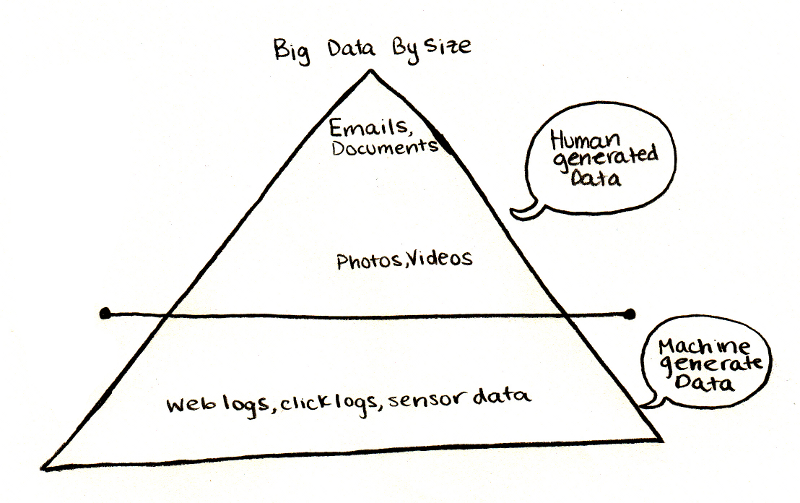 Big Data By Size
Emails,
Documents
Human
generated
Data
Photos,Videos
Machine
generate
Data
Web logs, click logs, sensor data